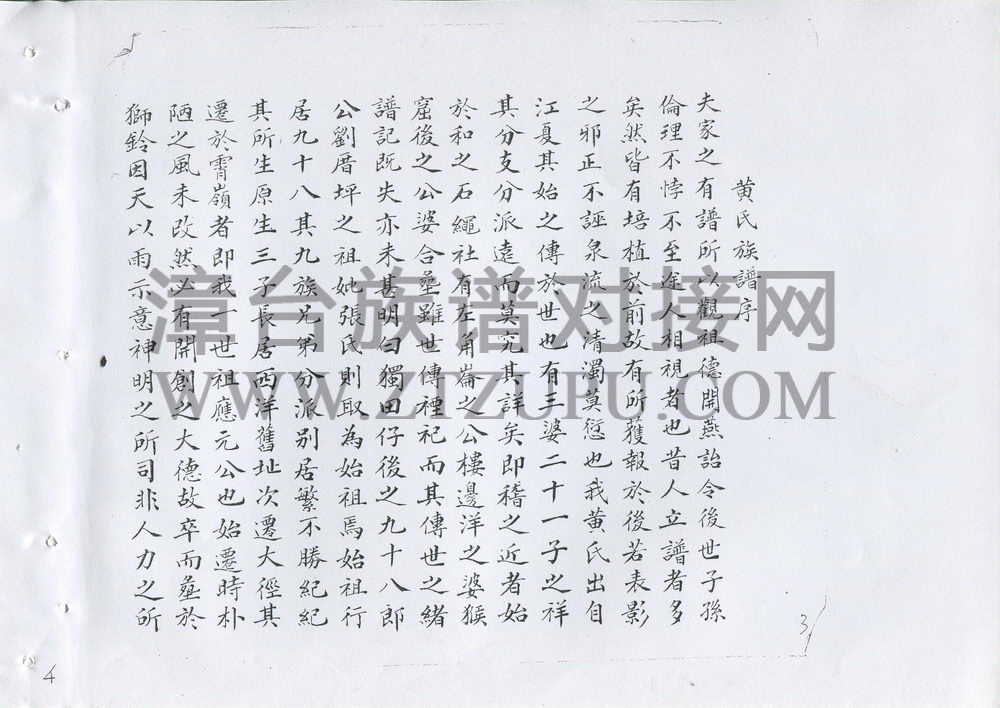 黄氏族譜序
夫家之有譜所以觀祖德開燕詒令後世子孫
倫理不悖不至途人相視者也昔人立譜者多
矣然皆有培植於前故有所獲報於後若表影
之邪正不誣泉流之清濁莫愆也我黄氏出自
江夏其始之傳於世也有三婆二十一子之祥
其分支分派遠而莫究其詳矣即稽之近者始
於和之石繩社有左角崙之公樓邊洋之婆猴
窟後之公婆合塟雖世傳禋祀而其傳世之緒
譜記既失亦未甚明曰獨田仔後之九十八郎
公劉厝坪之祖妣張氏則取為始祖焉始祖行
居九十八其九族兄弟分派别居繁不勝紀紀
其所生原生三子長居西洋舊址次遷大徑其
遷於霄嶺者即我一世祖應元公也始遷時朴
陋之風未改然必有開創之大德故卒而塟於
獅鈴因天以雨示意神明之所司非人力之所
漳台族谱对接网
WWW.ZZZUPU.COM
3
4